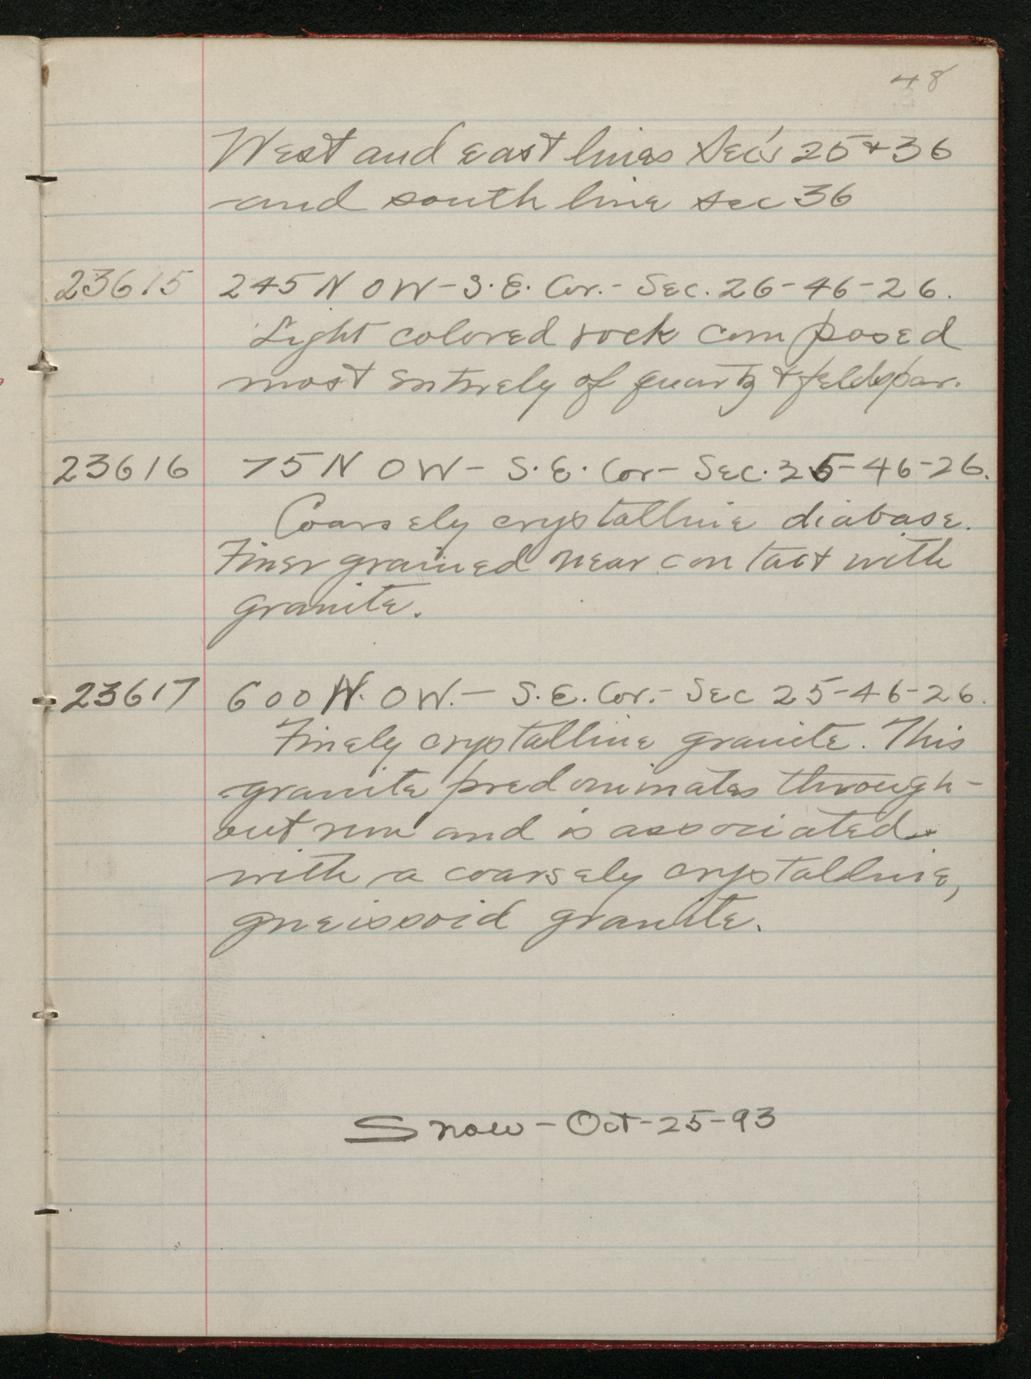 48
West and east lines Sec's 25 + 36
and south line sec 36
23615 245 N 0 W - S.E. Cor. - Sec. 26-46-26.
Light colored rock composed
most entirely of quartz & feldspar.
23616 75 N 0 W - S.E. Cor - Sec. 25-46-26.
Coarsely crystalline diabase.
Finer grained near contact with
granite.
23617 600 N. 0 W. - S.E. Cor. - Sec 25-46-26.
Finely crystalline granite. This
granite predominates through-
out run and is associated
with a coarsely crystalline,
gneissoid granite.
Snow - Oct - 25 - 93